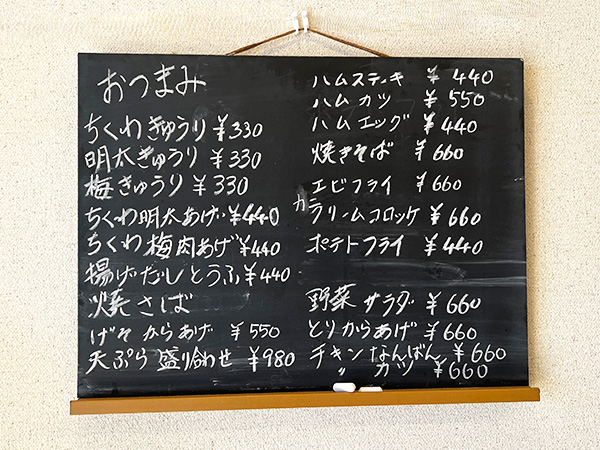 おつまみ
ちくわきゅうり ¥330
明太きゅうり ¥330
梅きゅうり ¥330
ちくわ明太あげ ¥440
ちくわ梅肉あげ ¥440
揚げだしとうふ ¥440
焼さば
げそからあげ ¥550
天ぷら盛り合わせ ¥980
ハムステーキ ¥440
ハムカツ ¥550
ハムエッグ ¥440
焼きそば ¥660
エビフライ ¥660
カニクリームコロッケ ¥660
ポテトフライ ¥440
野菜サラダ ¥660
とりからあげ ¥660
チキンなんばん ¥660
〃 カツ ¥660